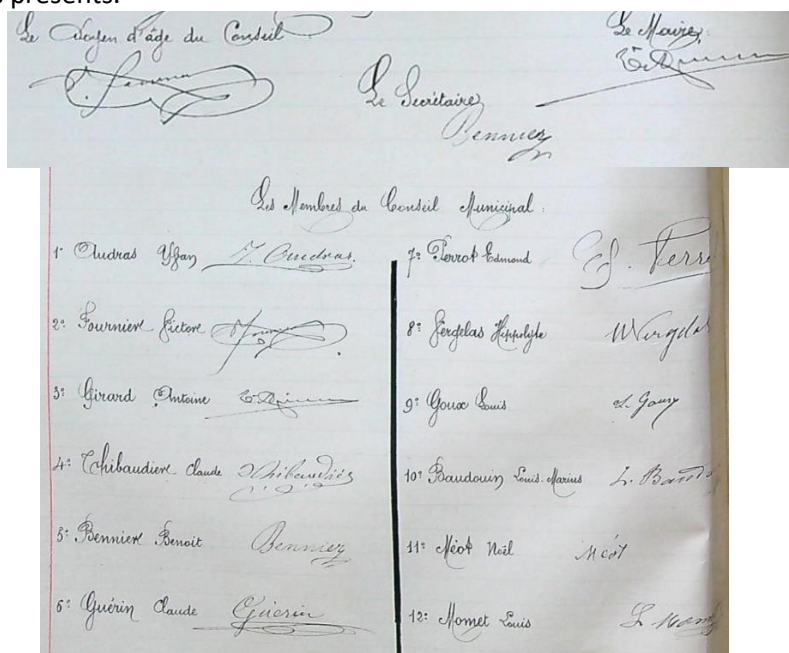 présents.
Le Doyen d'âge du Conseil
Le Maire,
Le Secrétaire,
Bennier
Les Membres du Conseil Municipal :
1° Audras Yfan J. Audras.
2° Fournier Victor
3° Girard Antoine
4° Thibaudier Claude Thibaudier
5° Bennier Benoit Bennier
6° Guérin Claude Guérin
7° Perrot Edmond Ed. Perro
8° Vergelas Hippolyte
9° Goux Louis L. Goux
10° Baudouin Louis-Marius L. Baudo
11° Méot Noël Méot
12° Momet Louis L. Mom